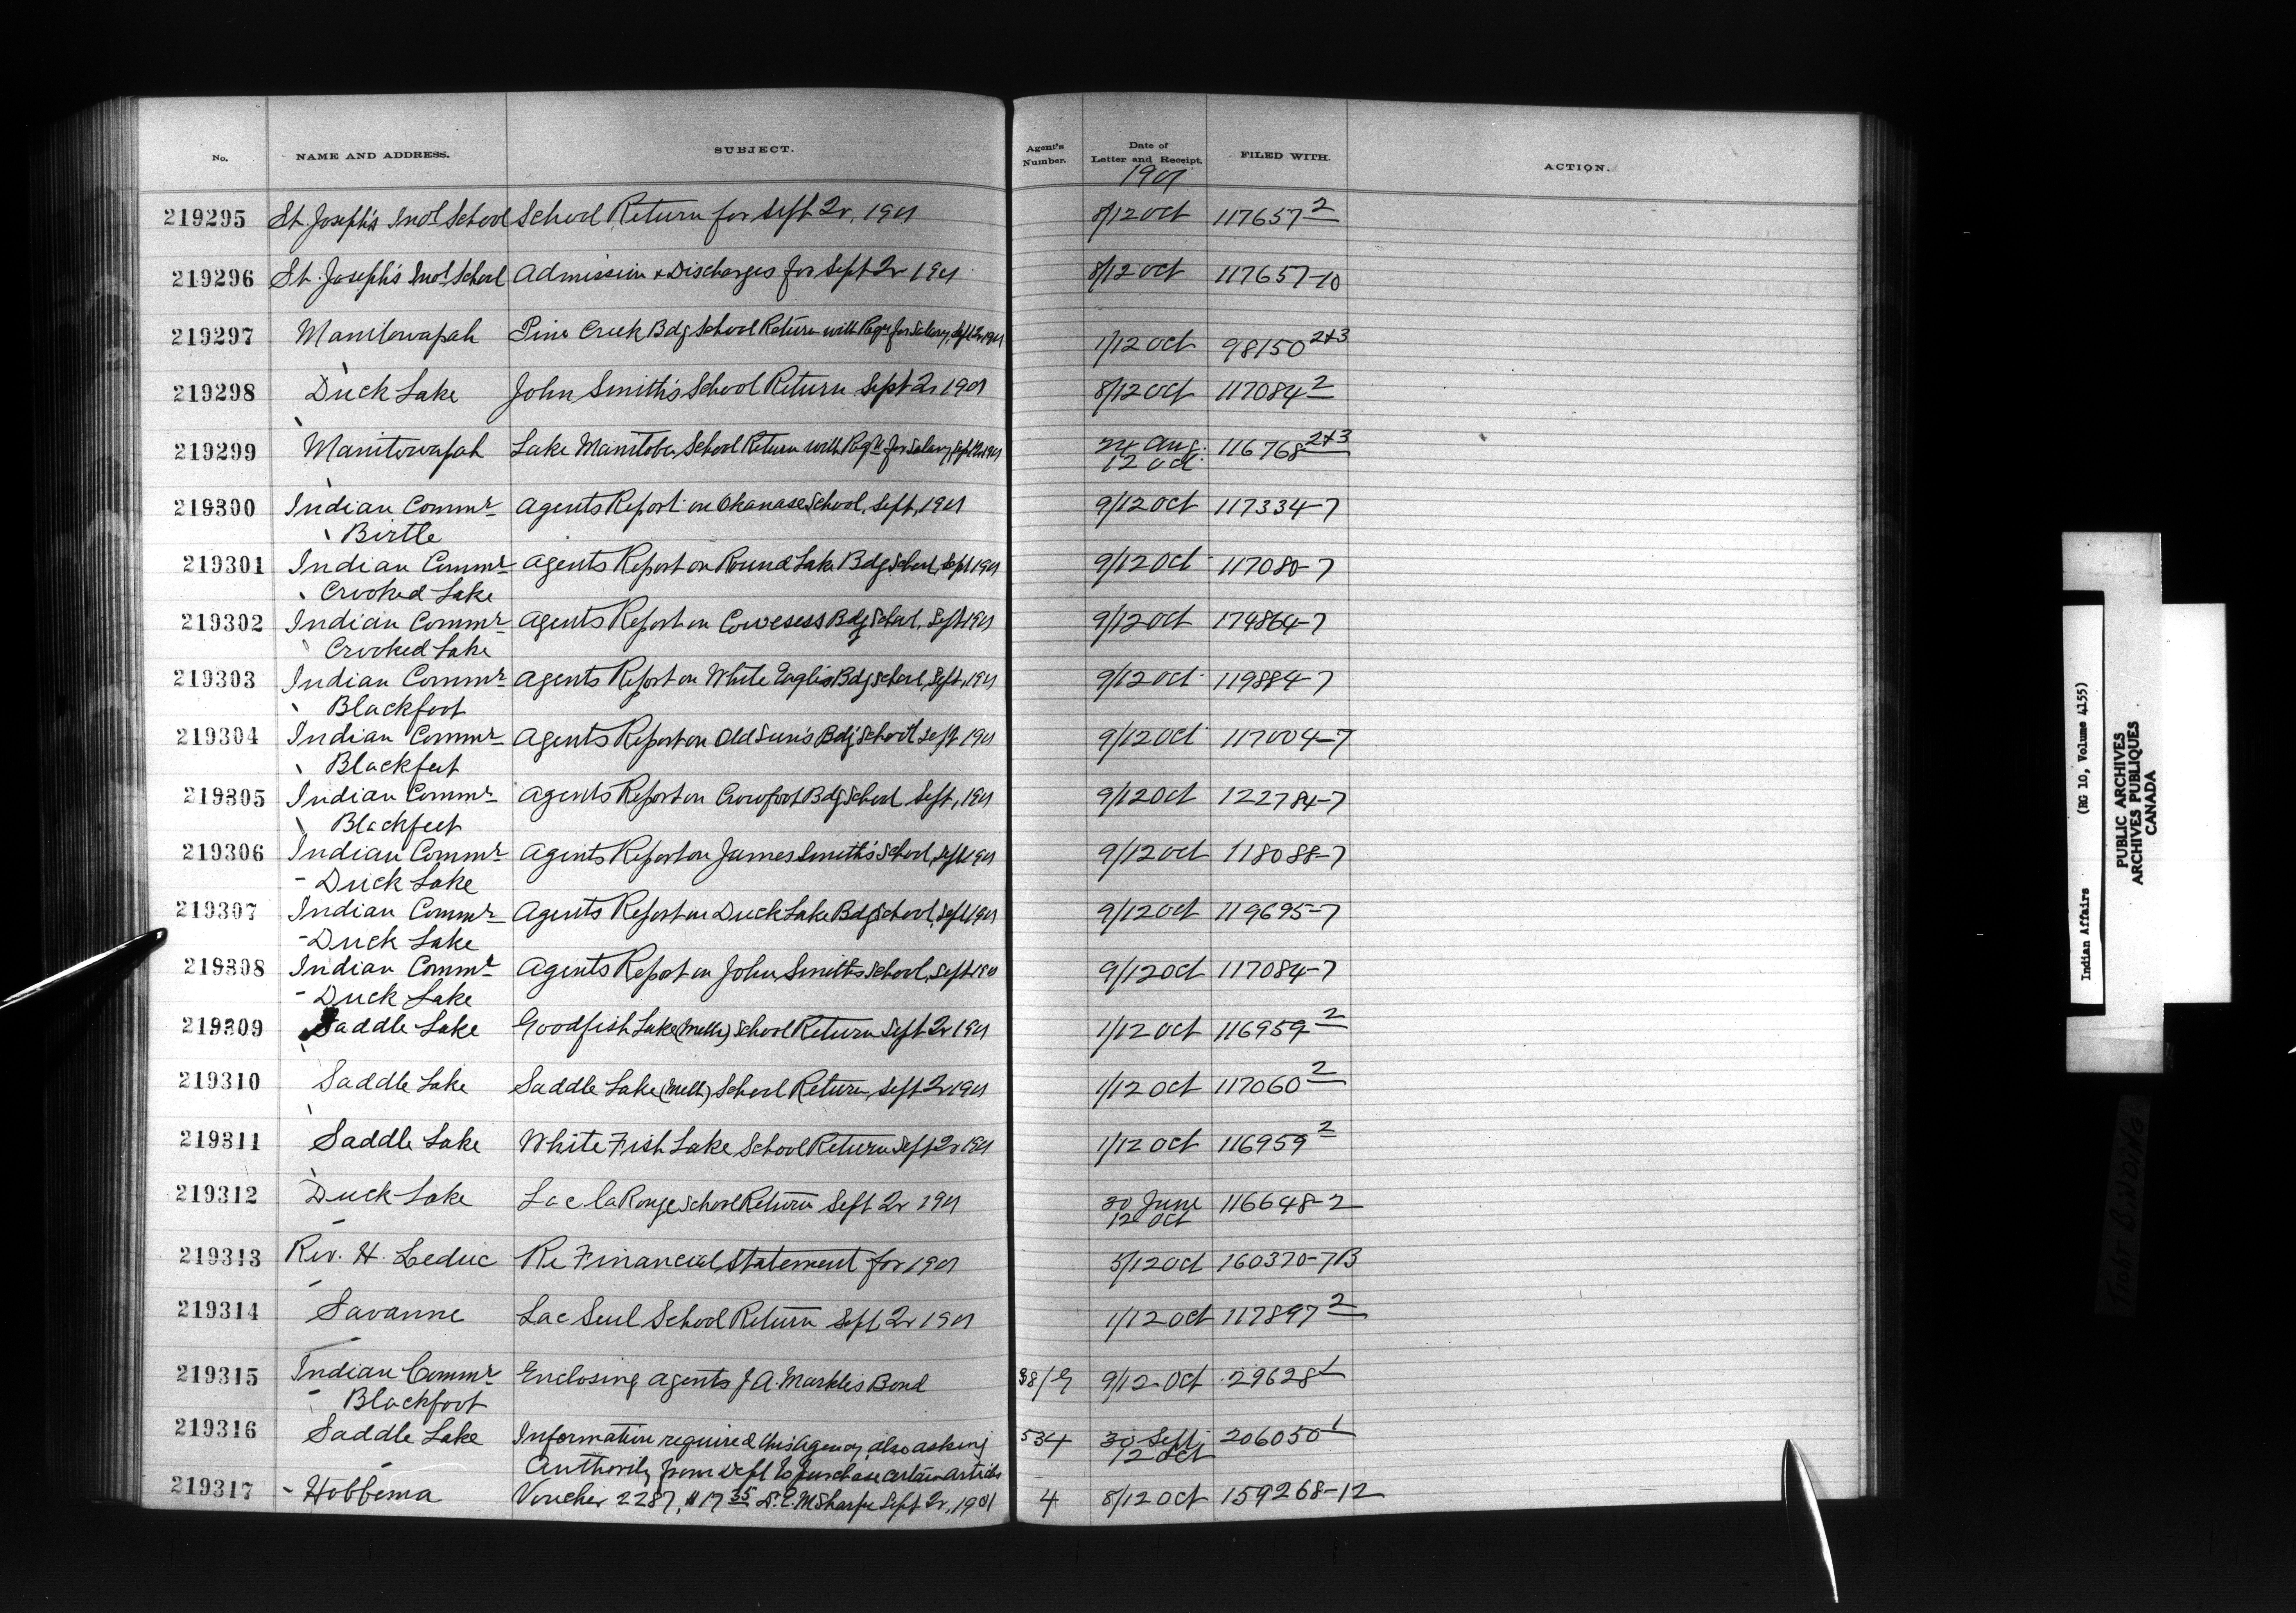 No. NAME AND ADDRESS. SUBJECT. Agent's Number. Date of Letter and Receipt. FILED WITH. ACTION.
1901
219295 St. Joseph's Indl School School Return for Sept Qr, 1901 8/12 Oct 117657 2
219296 St. Joseph's Indl School Admission & Discharges for Sept Qr 1901 8/12 Oct 117657-10
219297 Manitowapah Pine Creek Bdg School Return with Reqn for Salary, Sept Qr 1901 1/12 Oct 98150 2+3
219298 Duck Lake John Smith's School Return Sept Qr 1901 8/12 Oct 117084 2
219299 Manitowapah Lake Manitoba School Return with Reqn for Salary, Sept Qr 1901 24 Aug. 116768 2+3
12 Oct.
219300 Indian Commr Agents Report on Okanase School, Sept, 1901 9/12 Oct 117334-7
Birtle
219301 Indian Commr Agents Report on Round Lake Bdg School, Sept 1901 9/12 Oct 117080-7
Crooked Lake
219302 Indian Commr Agents Report on Cowesess Bdg School, Sept 1901 9/12 Oct 174864-7
Crooked Lake
219303 Indian Commr Agents Report on White Eagles Bdg School, Sept, 1901 9/12 Oct 119884-7
Blackfoot
219304 Indian Commr Agents Report on Old Sun's Bdg School Sept 1901 9/12 Oct 117004-7
Blackfeet
219305 Indian Commr Agents Report on Crowfoot Bdg School Sept, 1901 9/12 Oct 122784-7
Blackfeet
219306 Indian Commr Agents Report on James Smith's School, Sept 1901 9/12 Oct 118088-7
- Duck Lake
219307 Indian Commr Agents Report on Duck Lake Bdg School, Sept 1901 9/12 Oct 119695-7
- Duck Lake
219308 Indian Commr Agents Report on John Smith's School, Sept 1901 9/12 Oct 117084-7
- Duck Lake
219309 Saddle Lake Goodfish Lake (Meth) School Return Sept Qr 1901 1/12 Oct 116959 2
219310 Saddle Lake Saddle Lake (Meth) School Return, Sept Qr 1901 1/12 Oct 117060 2
219311 Saddle Lake White Fish Lake School Return Sept Qr 1901 1/12 Oct 116959 2
219312 Duck Lake Lac la Ronge School Return Sept Qr 1901 30 June 116648-2
12 Oct
219313 Rev. H. Leduc Re Financial Statement for 1901 5/12 Oct 160370-7B
219314 Savanne Lac Seul School Return Sept Qr 1901 1/12 Oct 117897 2
219315 Indian Commr Enclosing Agents J A. Markle's Bond 38/G 9/12 Oct 29628 1
Blackfoot
219316 Saddle Lake Information required this Agency, also asking 534 30 Sept 206050 1
Authority from Dept to purchase certain articles 12 Oct
219317 - Hobbema Voucher 2287, $17 35 D. E. McSharpe Sept Qr, 1901 4 8/12 Oct 159268-12
Indian Affairs (RG 10, Volume 4155)
PUBLIC ARCHIVES
ARCHIVES PUBLIQUES
CANADA
TIGHT BINDING